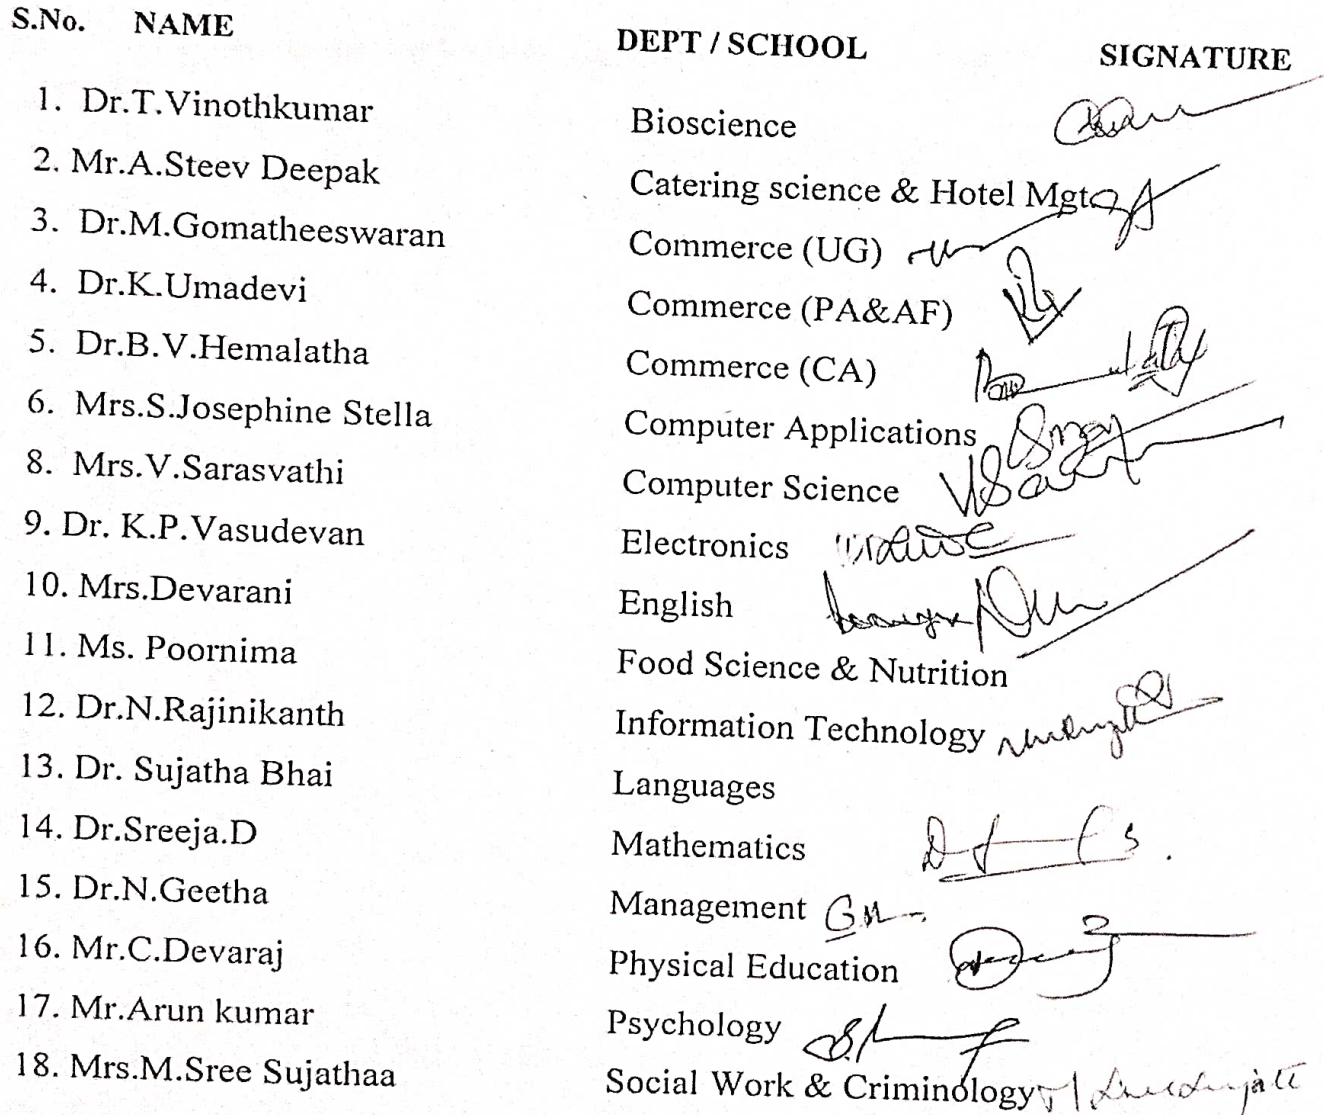 S.No. NAME DEPT / SCHOOL SIGNATURE
1. Dr.T.Vinothkumar Bioscience
2. Mr.A.Steev Deepak Catering science & Hotel Mgt
3. Dr.M.Gomatheeswaran Commerce (UG)
4. Dr.K.Umadevi Commerce (PA&AF)
5. Dr.B.V.Hemalatha Commerce (CA)
6. Mrs.S.Josephine Stella Computer Applications
8. Mrs.V.Sarasvathi Computer Science
9. Dr. K.P.Vasudevan Electronics
10. Mrs.Devarani English
11. Ms. Poornima Food Science & Nutrition
12. Dr.N.Rajinikanth Information Technology
13. Dr. Sujatha Bhai Languages
14. Dr.Sreeja.D Mathematics
15. Dr.N.Geetha Management
16. Mr.C.Devaraj Physical Education
17. Mr.Arun kumar Psychology
18. Mrs.M.Sree Sujathaa Social Work & Criminology